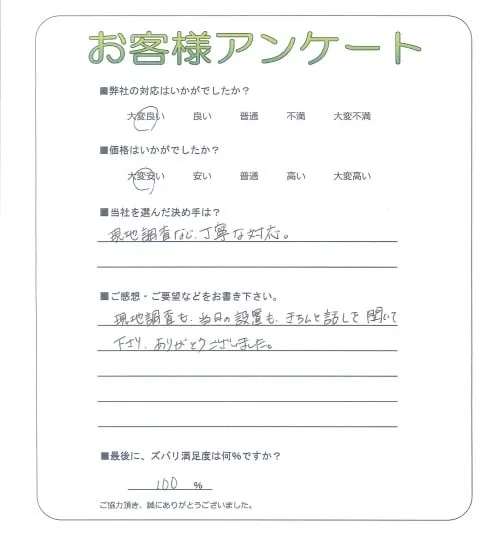 お客様アンケート
■弊社の対応はいかがでしたか？
大変良い 良い 普通 不満 大変不満
■価格はいかがでしたか？
大変安い 安い 普通 高い 大変高い
■当社を選んだ決め手は？
現地調査など、丁寧な対応。
■ご感想・ご要望などをお書き下さい。
現地調査も、当日の設置も、きちんと話しを聞いて
下さり、ありがとうございました。
■最後に、ズバリ満足度は何％ですか？
100 %
ご協力頂き、誠にありがとうございました。